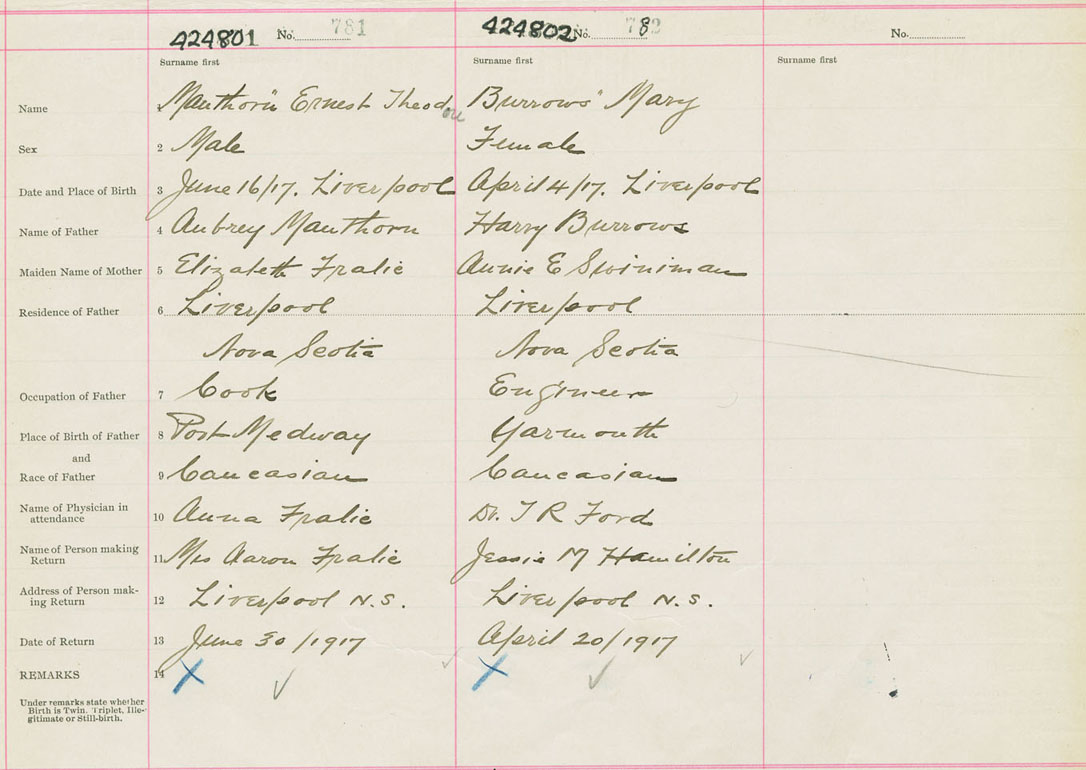 424801 No. 781 424802 No. 782 No.
Surname first Surname first Surname first
Name 1 Manthorn Ernest Theodore Burrows Mary
Sex 2 Male Female
Date and Place of Birth 3 June 16/17. Liverpool April 4/17. Liverpool
Name of Father 4 Aubrey Manthorn Harry Burrows
Maiden Name of Mother 5 Elizabeth Fralic Annie E Swiniman
Residence of Father 6 Liverpool Liverpool
Nova Scotia Nova Scotia
Occupation of Father 7 Cook Engineer
Place of Birth of Father 8 Port Medway Yarmouth
and
Race of Father 9 Caucasian Caucasian
Name of Physician in
attendance 10 Anna Fralic Dr. T R Ford
Name of Person making
Return 11 Mrs Aaron Fralic Jessie M Hamilton
Address of Person mak-
ing Return 12 Liverpool N.S. Liverpool N.S.
Date of Return 13 June 30/1917 April 20/1917
REMARKS 14
Under remarks state whether
Birth is Twin, Triplet, Ille-
gitimate or Still-birth.